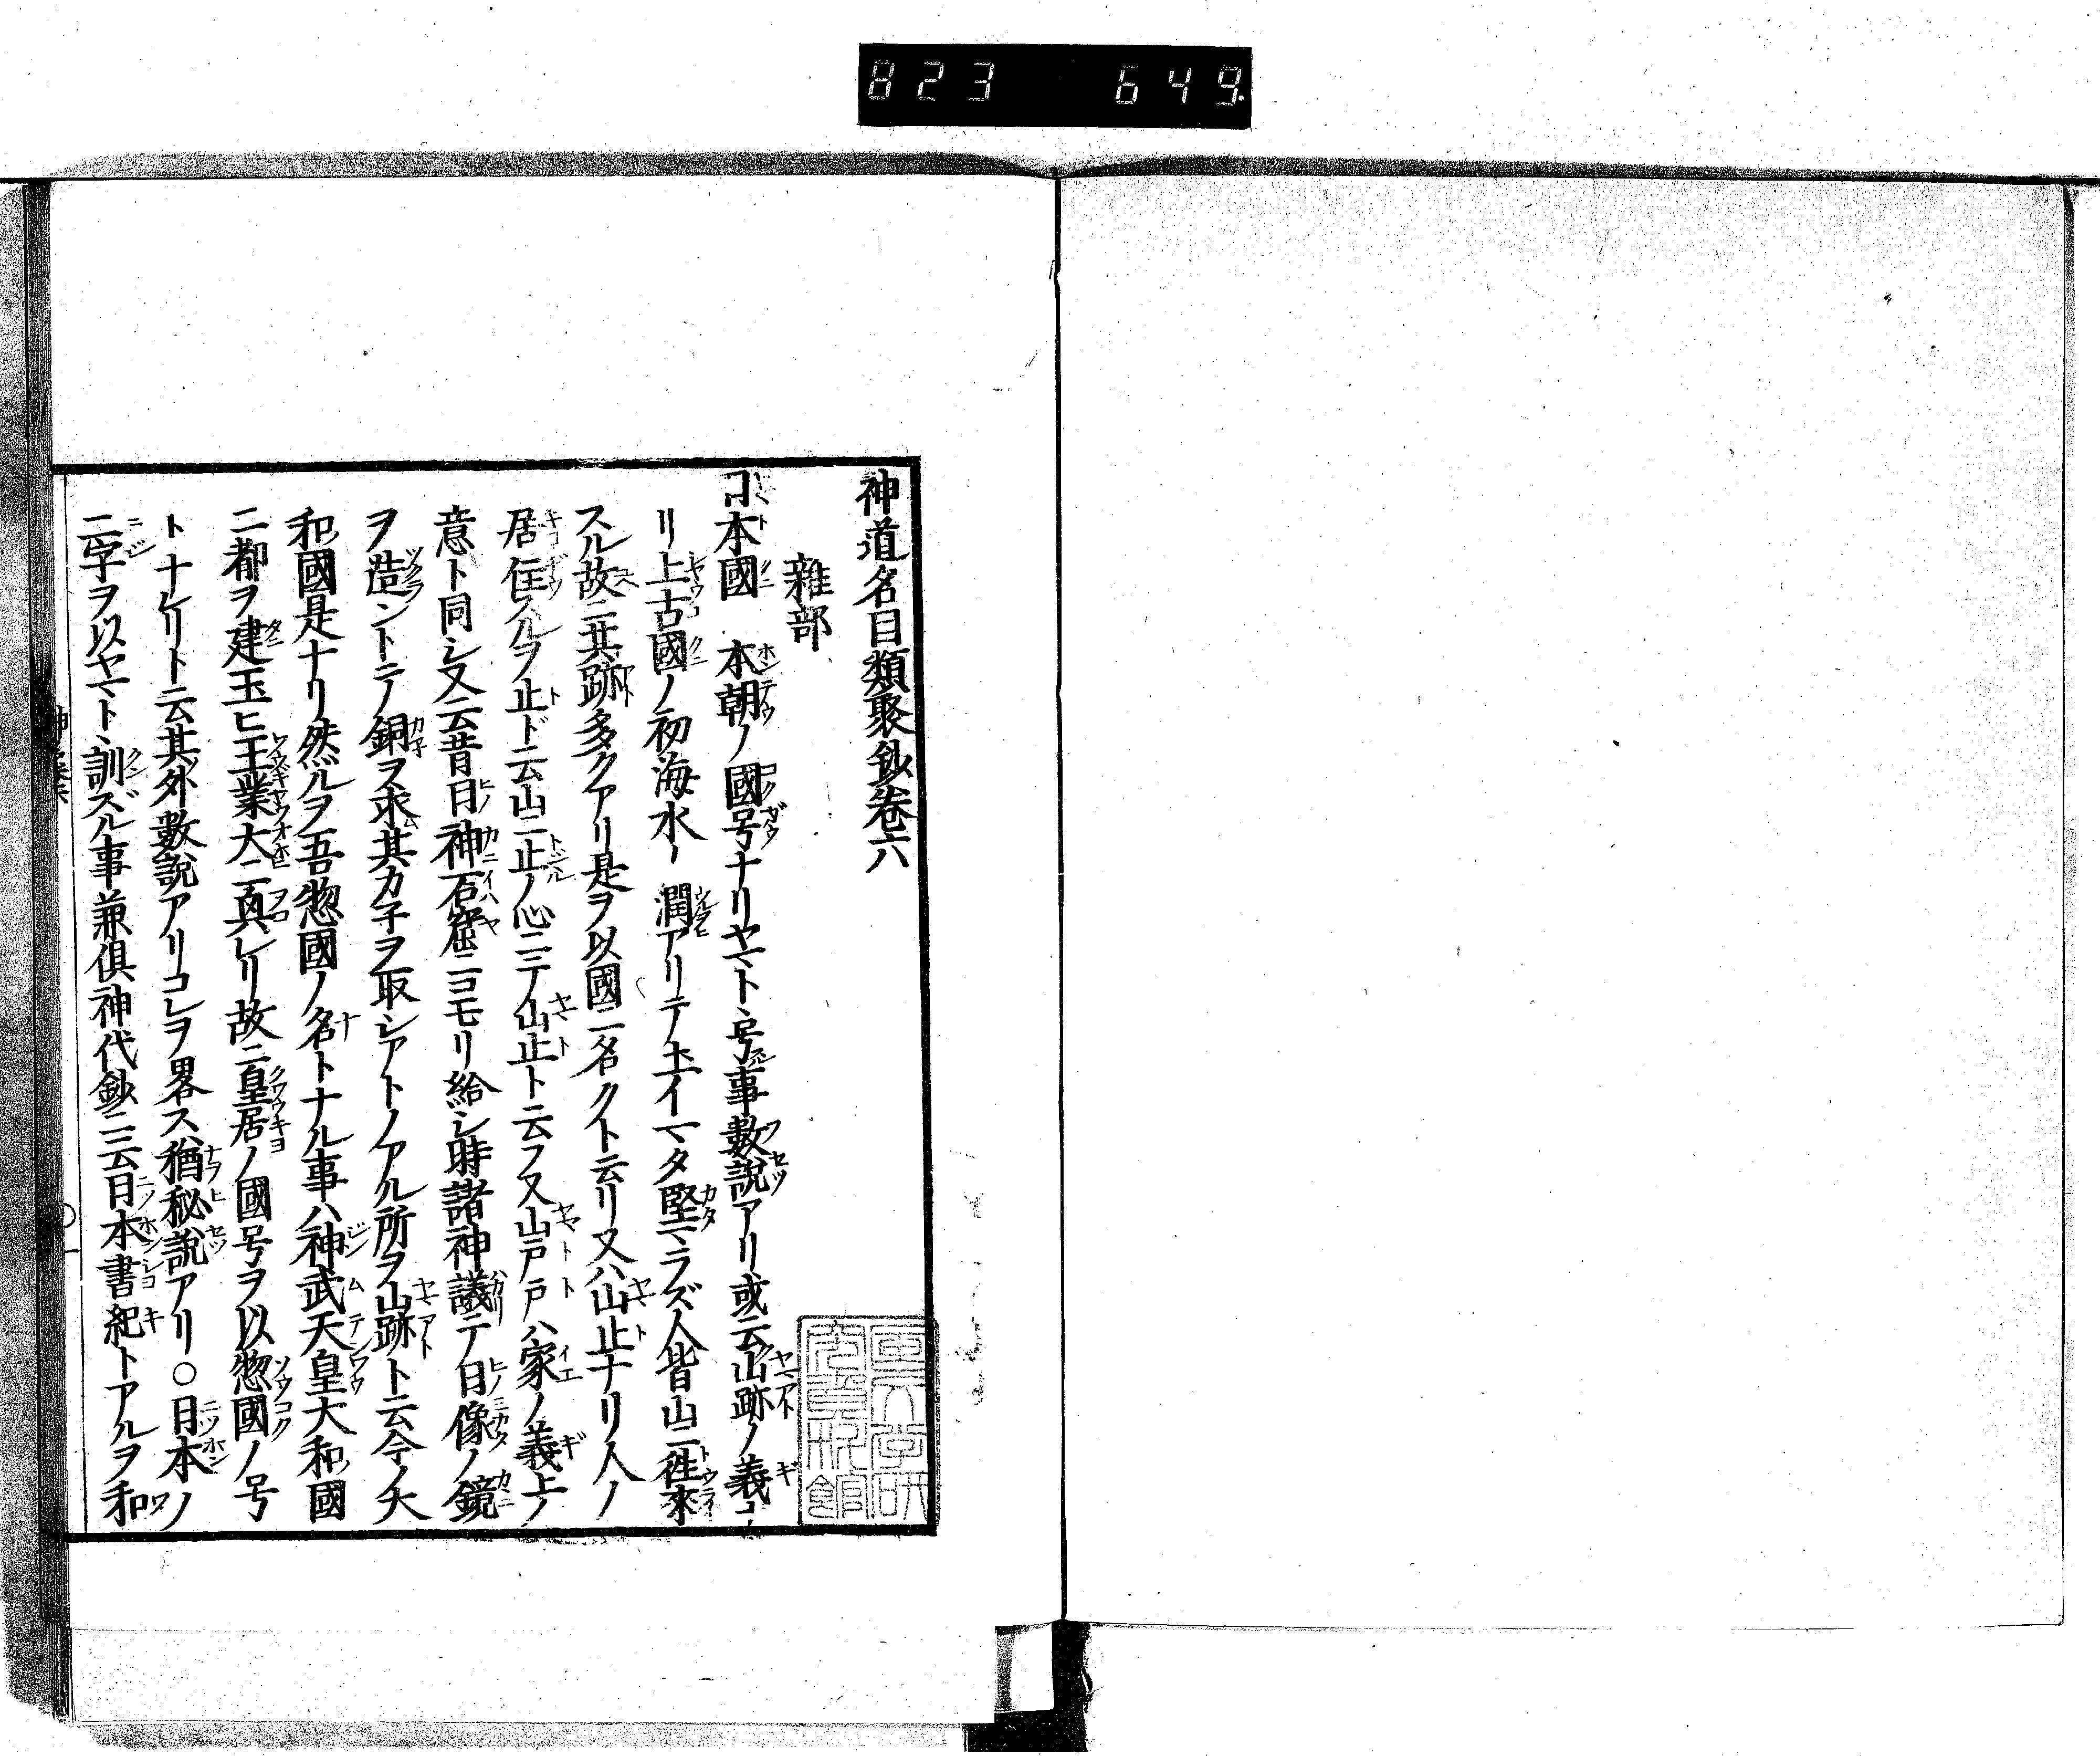 823 649
神道名目類聚鈔卷六
雜部
日本國 本朝ノ國号ナリヤマト号事數説アリ或云山跡ノ義ナ
リ上古國ノ初海水ノ潤アリテ土イマタ堅マラズ人皆山ニ徃來
スル故ニ其跡多クアリ是ヲ以國ニ名クト云リ又ハ山止ナリ人ノ
居住スルヲ止ド云山ニ止ノ心ニテ山止ト云フ又山戸戸ハ家ノ義上ノ
意ト同シ又云昔日神石窟ニコモリ給シ時諸神議テ日像ノ鏡
ヲ造ントテノ銅ヲ求其カ子ヲ取シアトノアル所ヲ山跡ト云今ノ大
和國是ナリ然ルヲ吾惣國ノ名トナル事ハ神武天皇大和國
ニ都ヲ建玉ヒ王業大ニ真レリ故ニ皇居ノ國号ヲ以惣國ノ号
トナレリト云其外數説アリコレヲ畧ス猶秘説アリ○日本ノ
二字ヲ以ヤマトヽ訓ズル事兼倶神代鈔ニ云日本書紀トアルヲ和